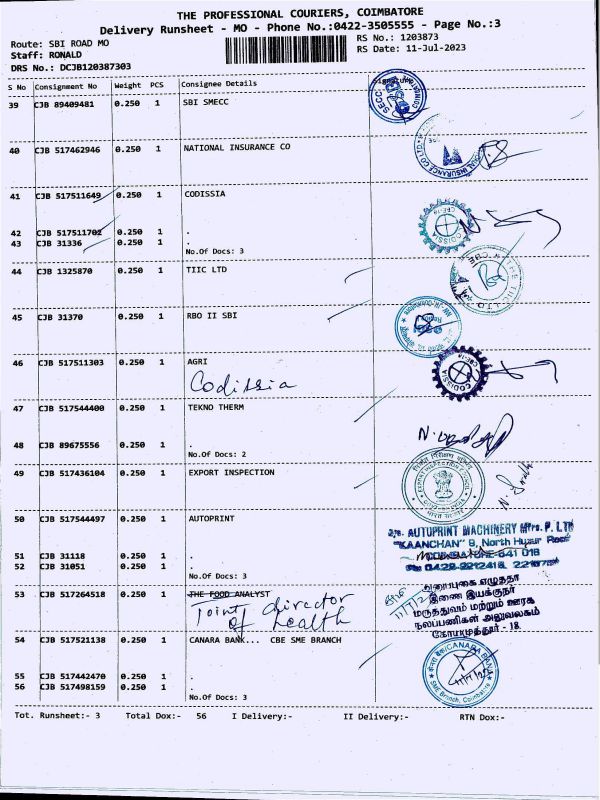 THE PROFESSIONAL COURIERS, COIMBATORE
Delivery Runsheet - MO - Phone No.:0422-3505555 - Page No.:3
Route: SBI ROAD MO
RS No.: 1203873
Staff: RONALD
RS Date: 11-Jul-2023
DRS No.: DCJB120387303
S No Consignment No Weight PCS Consignee Details Signature
39 CJB 89409481 0.250 1 SBI SMECC
40 CJB 517462946 0.250 1 NATIONAL INSURANCE CO
41 CJB 517511649 0.250 1 CODISSIA
42 CJB 517511702 0.250 1 .
43 CJB 31336 0.250 1 .
No.Of Docs: 3
CODISSIA
44 CJB 1325870 0.250 1 TIIC LTD
45 CJB 31370 0.250 1 RBO II SBI
46 CJB 517511303 0.250 1 AGRI
Codissia
CODISSIA
47 CJB 517544400 0.250 1 TEKNO THERM
48 CJB 89675556 0.250 1 .
No.Of Docs: 2
49 CJB 517436104 0.250 1 EXPORT INSPECTION
50 CJB 517544497 0.250 1 AUTOPRINT
AUTOPRINT MACHINERY Mfrs. P. LTD
"KAANCHAN" 9, North Huzur Road
COIMBATORE-641 018
51 CJB 31118 0.250 1 .
52 CJB 31051 0.250 1 .
No.Of Docs: 3
53 CJB 517264518 0.250 1 THE FOOD ANALYST
Joint director
of health
இணை இயக்குநர்
மருத்துவம் மற்றும் ஊரக
நலப்பணிகள் அலுவலகம்
கோயமுத்தூர் - 18
54 CJB 517521138 0.250 1 CANARA BANK... CBE SME BRANCH
CANARA BANK
SME Branch, Coimbatore
55 CJB 517442470 0.250 1 .
56 CJB 517498159 0.250 1 .
No.Of Docs: 3
Tot. Runsheet:- 3 Total Dox:- 56 I Delivery:- II Delivery:- RTN Dox:-